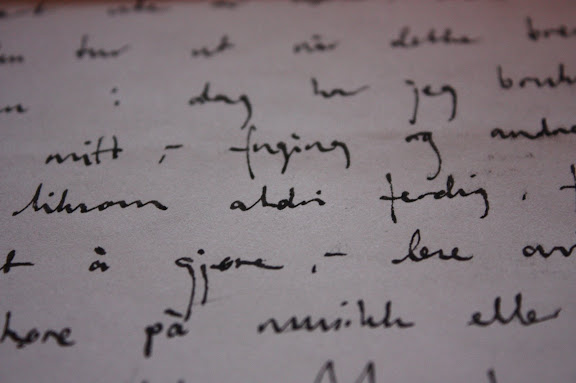 tur ut når dette
i dag har jeg
mitt, - fuging og andre
liksom aldri ferdig.
å gjøre, - lese
høre på musikk eller